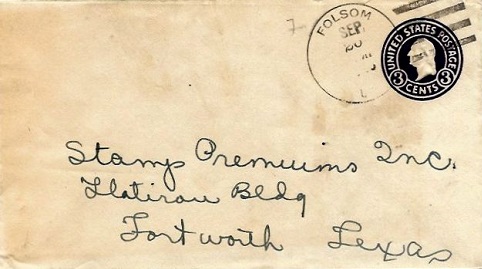 FOLSOM
SEP
20
UNITED STATES POSTAGE
3 CENTS 3
Stamp Premiums Inc.
Flatiron Bldg
Fort worth Texas